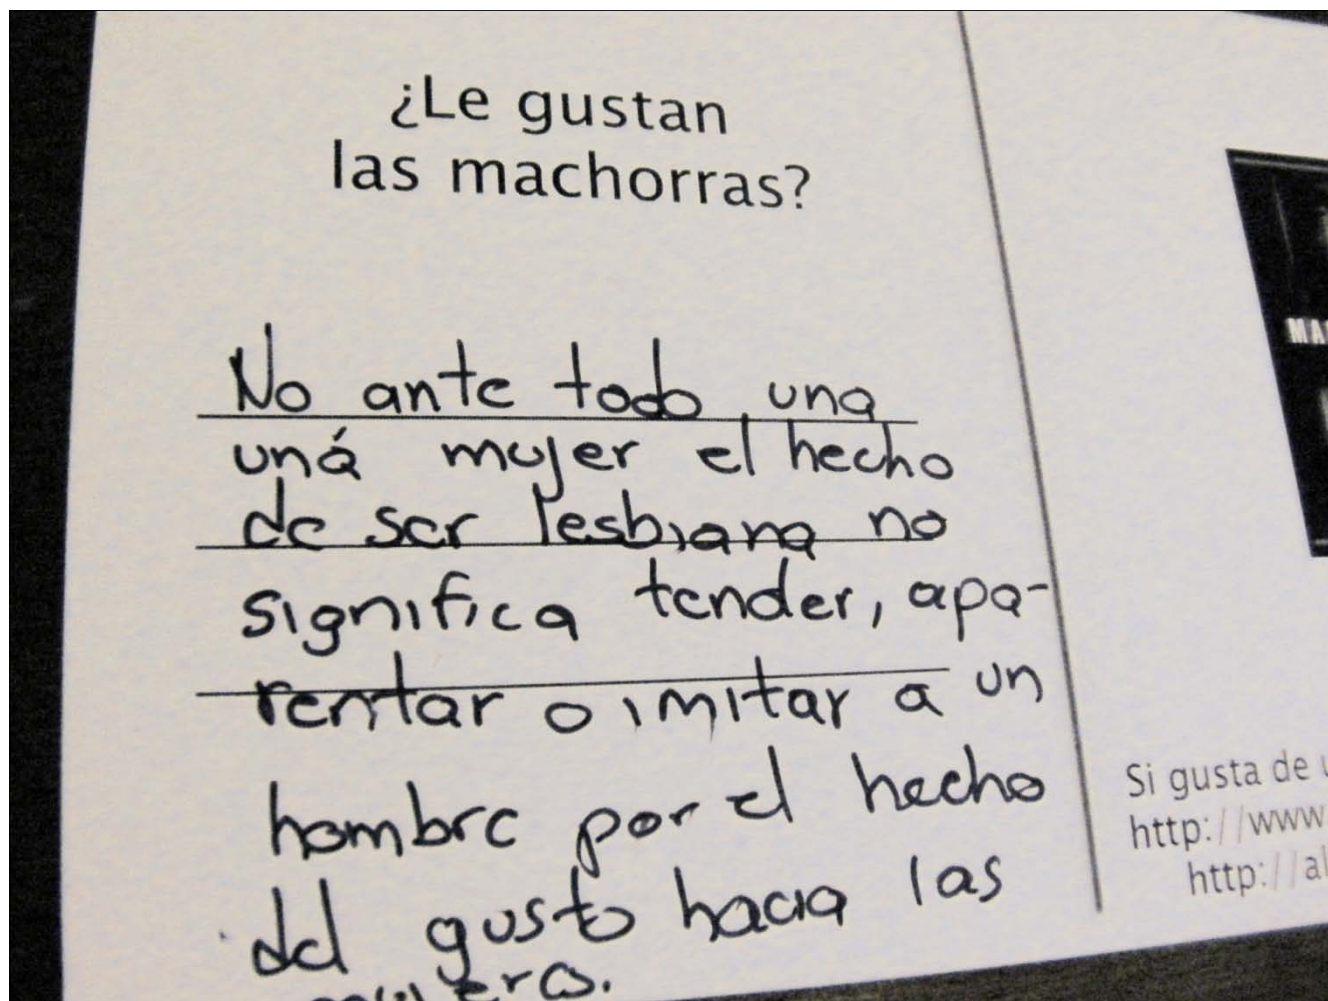 ¿Le gustan
las machorras?
No ante todo una
uná mujer el hecho
de ser lesbiana no
significa tender, apa-
rentar o imitar a un
hombre por el hecho
del gusto hacia las
MA
Si gusta de u
http://www
http://al